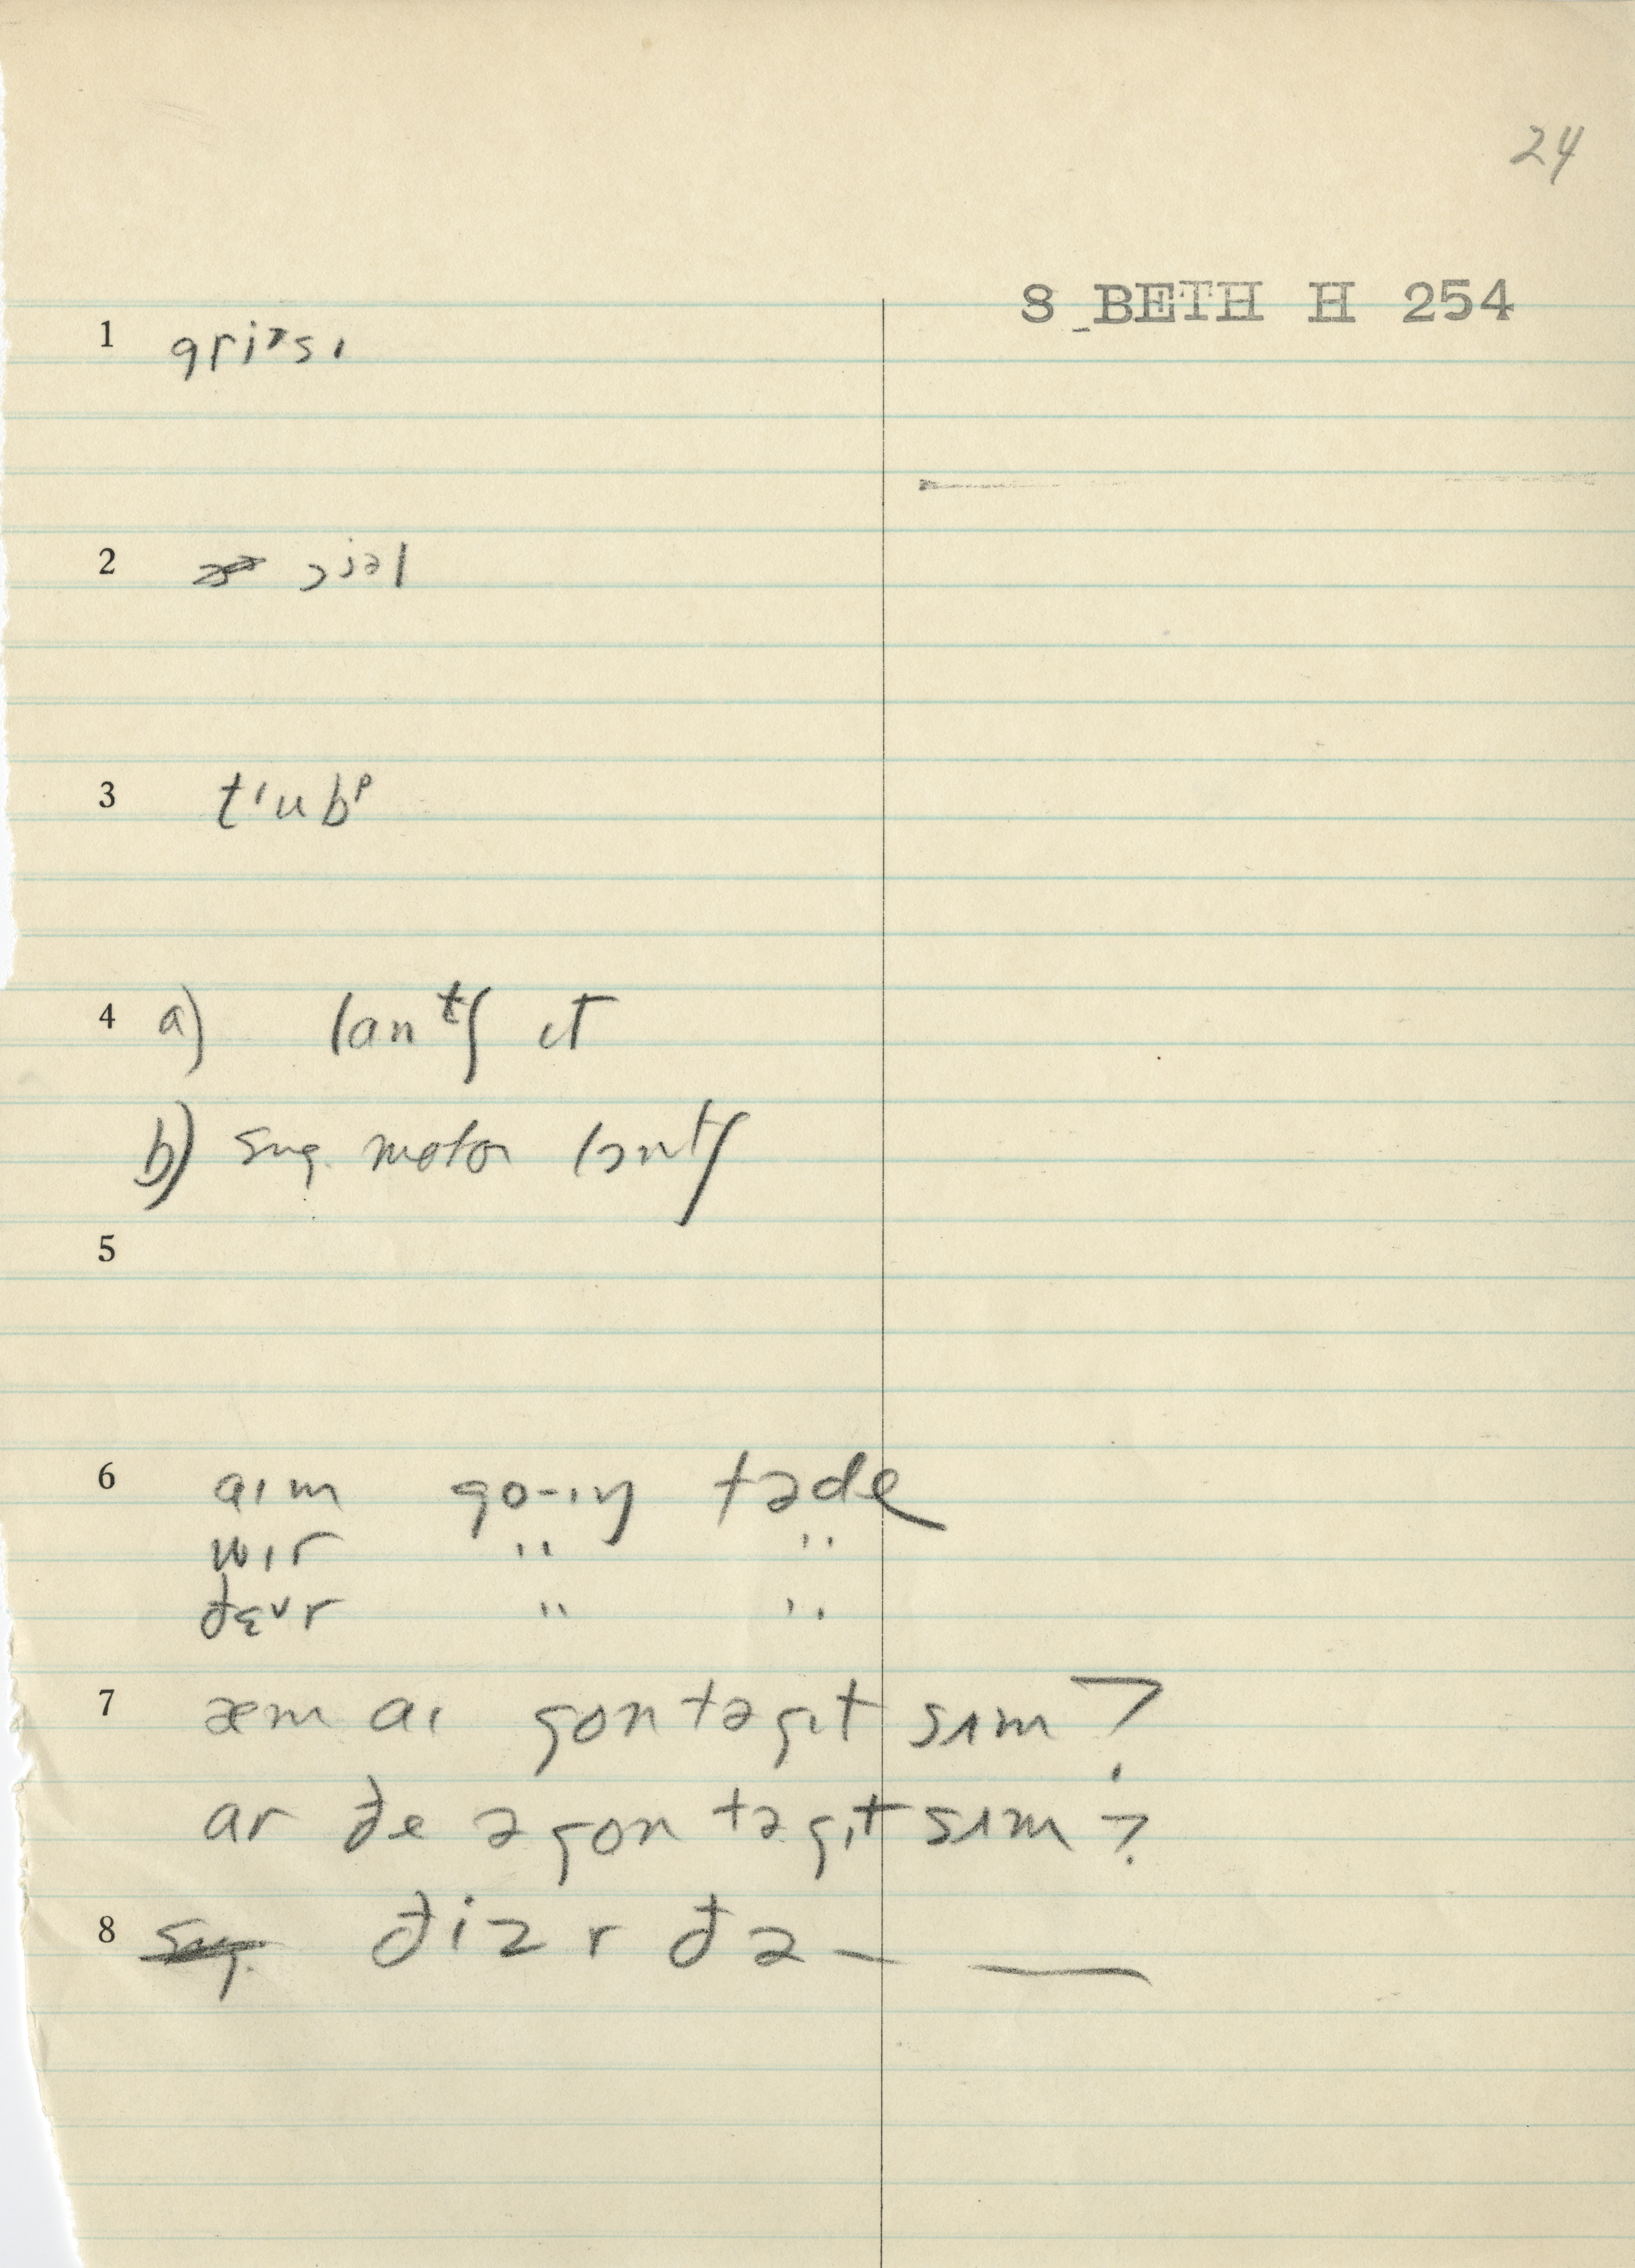 24
S BETH H 254
1 griᶻsɪ
2 ɔjəl
3 tʹubᵖ
4 a) lanᵗʃ ɪt
b) sug. motor lɔntʃ
5
6 aɪm go-ɪŋ təde
wɪr " "
ðɛᵛr " "
7 æm aɪ gon təgɪt sʌm?
ar ðe əgon təgɪt sʌm?
8 sug. ðiz r ðə — —